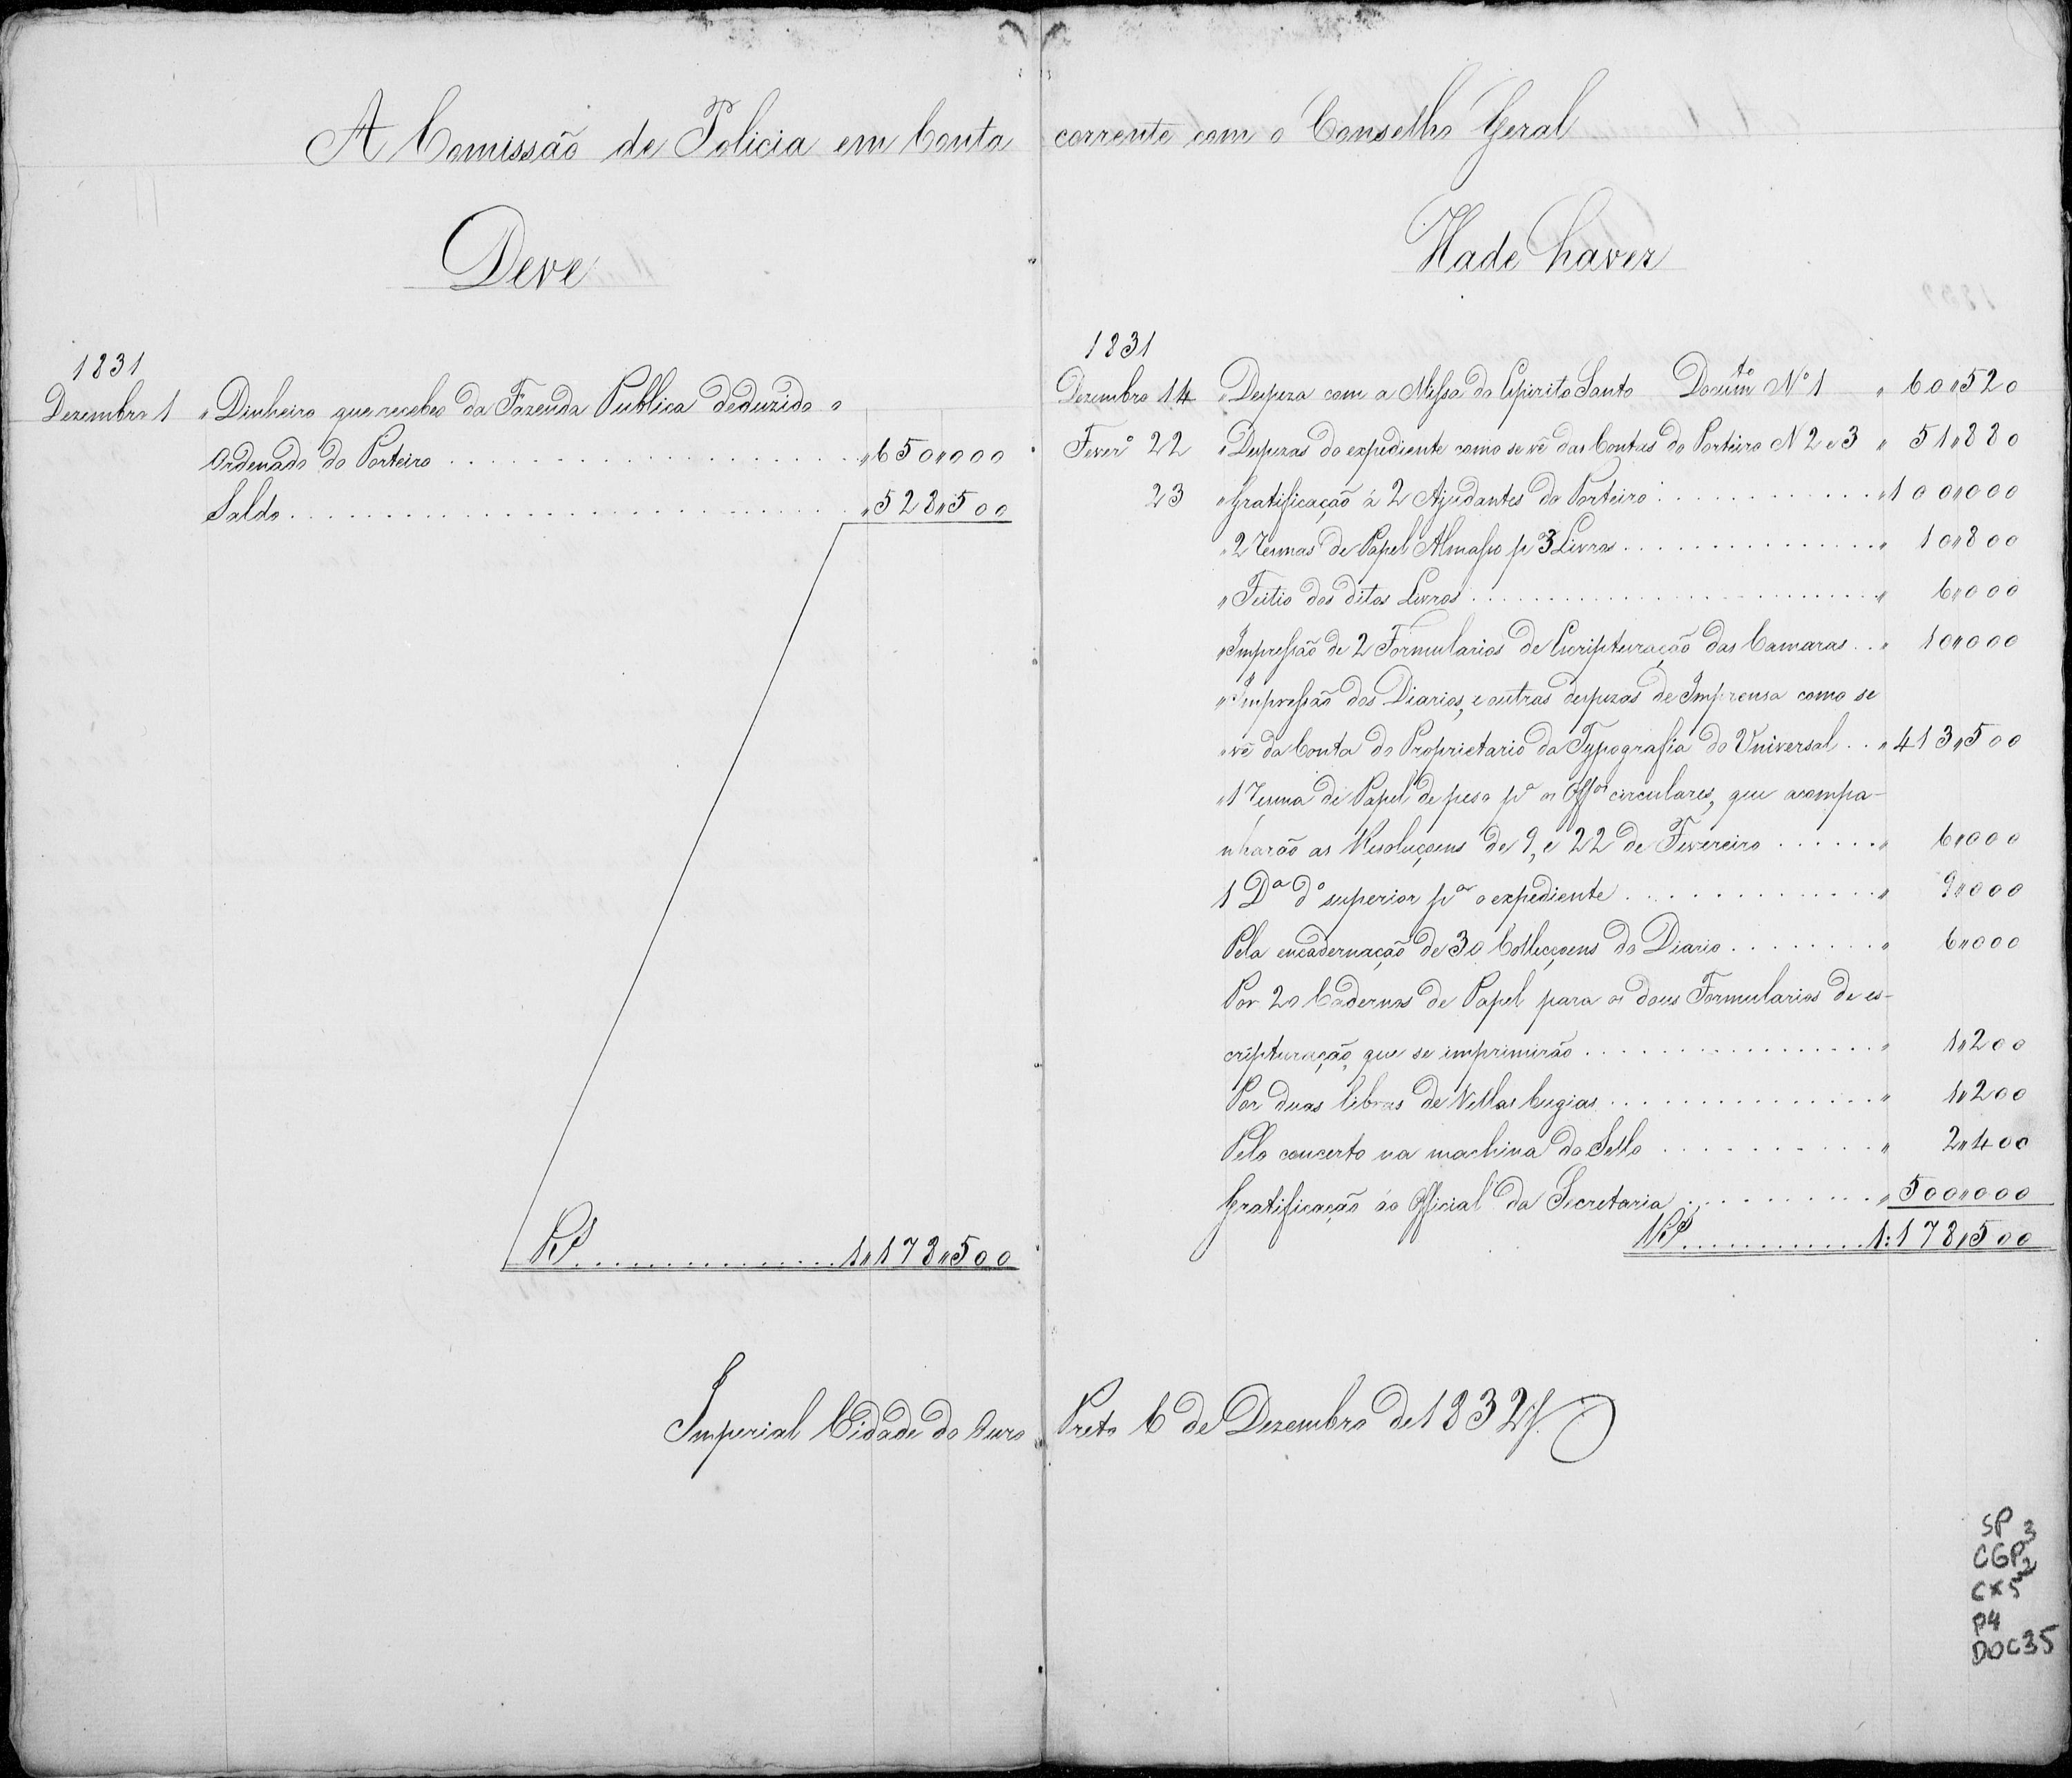 A Comissão de Policia em Conta corrente com o Conselho Geral
Deve
1831
Dezembro 1 " Dinheiro que recebeo da Fazenda Publica deduzido o
Ordenado do Porteiro . . . . . . . . . . . . . . . . . " 650"000
Saldo . . . . . . . . . . . . . . . . . . . . . . . . . . " 528"500
Rs . . . . . . . . . . . . . . . 1"178"500
Hade haver
1831
Dezembro 14 " Despeza com a Missa do Espirito Santo Docum.to Nº 1 " 60"520
Fever.º 22 " Despezas do expediente como se vê das Contas do Porteiro N 2 e 3 " 51"880
23 " Gratificação á 2 Ajudantes do Porteiro . . . . . . . . . . . . " 100"000
" 2 Resmas de Papel Almasso p 3 Livros . . . . . . . . . . . . . . " 10"800
" Feitio dos ditos Livros . . . . . . . . . . . . . . . . . . . . . . " 6"000
" Impressão de 2 Formularios de Escripturação das Camaras . . " 10"000
" Impressão dos Diarios, e outras despezas de Imprensa como se
" vê da Conta do Proprietario da Typografia do Universal . . " 413"500
" 1 Resma de Papel de peso p.a os Off.os circulares, que acompa-
nharão as Resoluçoens de 9, e 22 de Fevereiro . . . . . . " 6"000
1 D.a d.º superior p.a o expediente . . . . . . . . . . . . . . " 9"000
Pela encadernação de 30 Collecçoens do Diario . . . . . . . . " 6"000
Por 20 Cadernos de Papel para os dous Formularios de es-
cripturação, que se imprimirão . . . . . . . . . . . . . . . . " 1"200
Por duas libras de Vellas bugias . . . . . . . . . . . . . . " 1"200
Pelo concerto na machina do Sello . . . . . . . . . . . " 2"400
Gratificação ao Official da Secretaria . . . . . . . . . . " 500"000
Rs . . . . . . . . . . . . 1:178"500
Imperial Cidade do Ouro Preto 6 de Dezembro de 1832
SP 3
CGP2
CX5
P4
DOC35